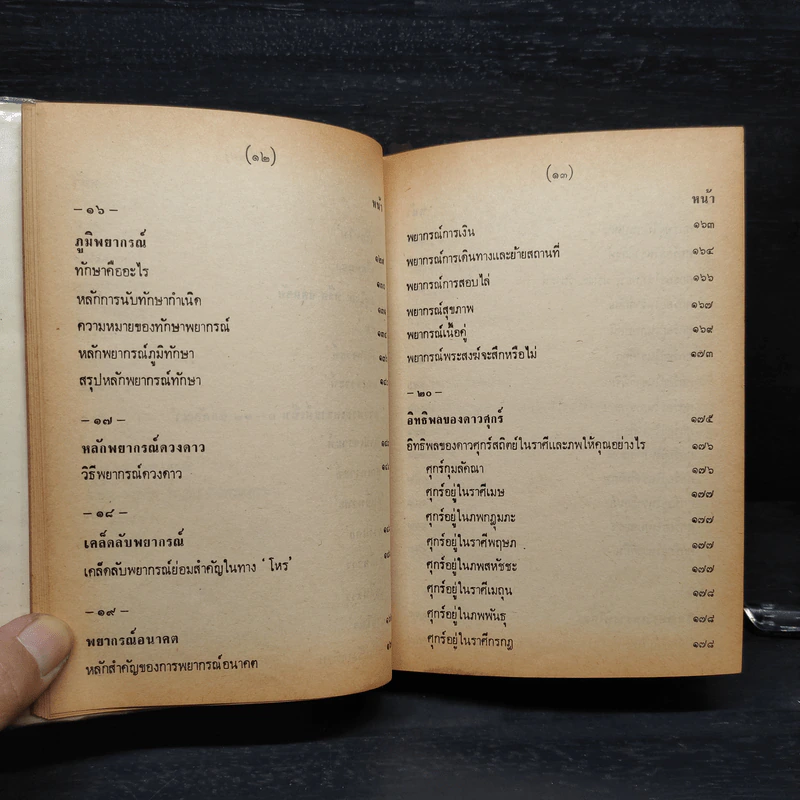 (๑๒)
หน้า
– ๑๖ –
ภูมิพยากรณ์
ทักษาคืออะไร
หลักการนับทักษากำเนิด
ความหมายของทักษาพยากรณ์
หลักพยากรณ์ภูมิทักษา
สรุปหลักพยากรณ์ทักษา
– ๑๗ –
หลักพยากรณ์ดวงดาว
วิธีพยากรณ์ดวงดาว
– ๑๘ –
เคล็ดลับพยากรณ์
เคล็ดลับพยากรณ์ย่อมสำคัญในทาง ' โหร'
– ๑๙ –
พยากรณ์อนาคต
หลักสำคัญของการพยากรณ์อนาคต
(๑๓)
หน้า
พยากรณ์การเงิน ๑๖๓
พยากรณ์การเดินทางและย้ายสถานที่ ๑๖๔
พยากรณ์การสอบไล่ ๑๖๖
พยากรณ์สุขภาพ ๑๖๗
พยากรณ์เนื้อคู่ ๑๖๙
พยากรณ์พระสงฆ์จะสึกหรือไม่ ๑๗๓
– ๒๐ –
อิทธิพลของดาวศุกร์ ๑๗๕
อิทธิพลของดาวศุกร์สถิตย์ในราศีและภพให้คุณอย่างไร ๑๗๖
ศุกร์กุมลัคณา ๑๗๖
ศุกร์อยู่ในราศีเมษ ๑๗๗
ศุกร์อยู่ในภพกฎุมภะ ๑๗๗
ศุกร์อยู่ในราศีพฤษภ ๑๗๗
ศุกร์อยู่ในภพสหัชชะ ๑๗๗
ศุกร์อยู่ในราศีเมถุน ๑๗๘
ศุกร์อยู่ในภพพันธุ ๑๗๘
ศุกร์อยู่ในราศีกรกฎ ๑๗๘